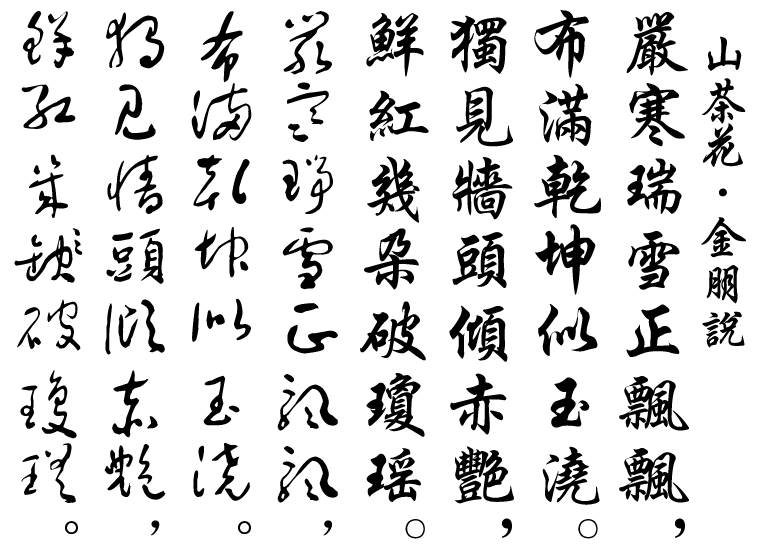 山茶花・金朋說
嚴寒瑞雪正飄飄，
布滿乾坤似玉澆。
獨見牆頭傾赤艷，
鮮紅幾朵破瓊瑶。
嚴寒瑞雪正飄飄，
布滿乾坤似玉澆。
獨見牆頭傾赤艷，
鮮紅幾朵破瓊瑶。